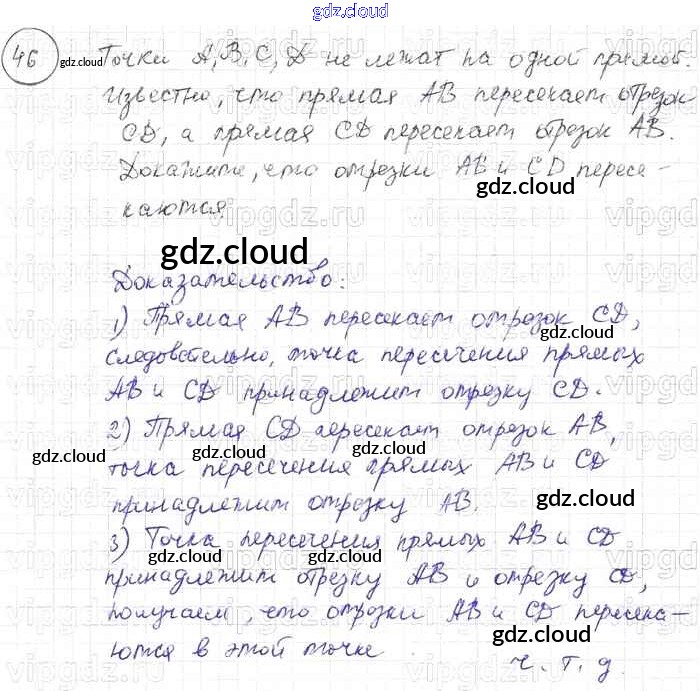 gdz.cloud
46 gdz.cloud Точки A, B, C, D не лежат на одной прямой.
Известно, что прямая AB пересекает отрезок
CD, а прямая CD пересекает отрезок AB.
Докажите, что отрезки AB и CD пересе-
gdz.cloud
каются
gdz.cloud
Доказательство:
1) Прямая AB пересекает отрезок CD,
gdz.cloud
следовательно, точка пересечения прямых
AB и CD принадлежит отрезку CD.
2) Прямая CD пересекает отрезок AB,
gdz.cloud gdz.cloud
точка пересечения прямых AB и CD
принадлежит отрезку AB.
gdz.cloud
3) Точка пересечения прямых AB и CD
gdz.cloud gdz.cloud
принадлежит отрезку AB и отрезку CD,
получаем, что отрезки AB и CD пересека-
gdz.cloud
ются в этой точке.
ч.т.д.